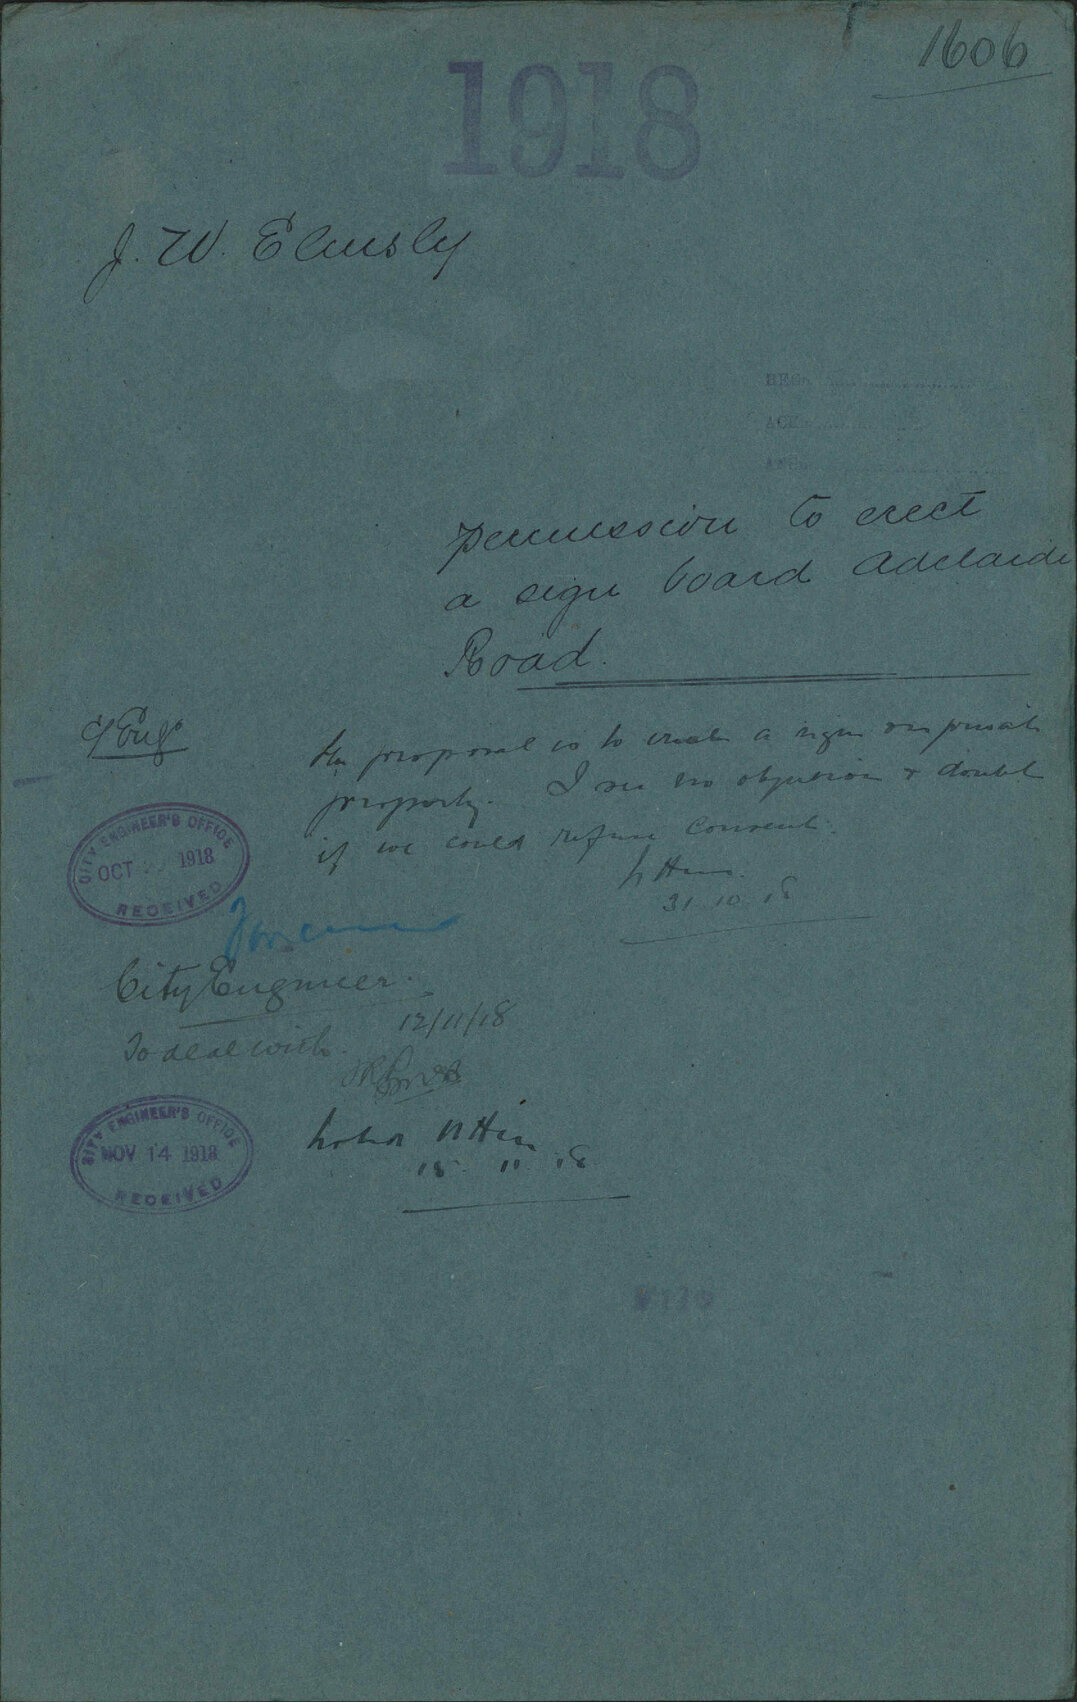 1606
1918
J. W. Elmsly
REG.
ACK.
ANS.
permission to erect
a sign board Adelaide
Road.
C/Engr
The proposal is to erect a sign on private
property. I see no objection & doubt
if we could refuse consent.
31.10.18
CITY ENGINEER'S OFFICE
OCT 1918
RECEIVED
City Engineer.
12/11/18
To deal with.
CITY ENGINEER'S OFFICE
NOV 14 1918
RECEIVED
noted
15 11 18